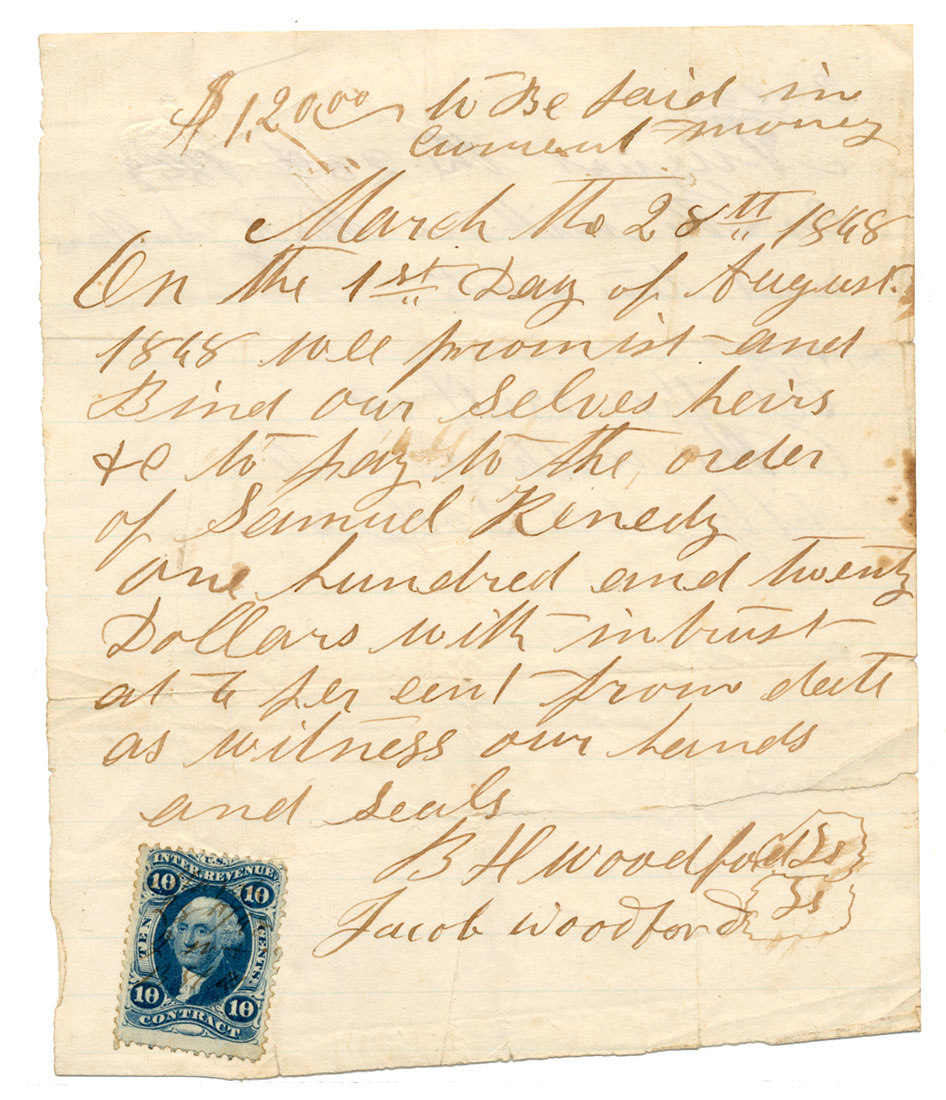 $120.00 to Be paid in
current money
March the 28th 1868
On the 1st Day of August
1868 wee promist and
Bind our Selves heirs
&c to pay to the order
of Samuel Kenedy
one hundred and twenty
Dollars with intrust
at 6 per cent from date
as witness our hands
and seals
B H Woodford
Jacob Woodford
U.S.
INTER. REVENUE
10 10
TEN CENTS
10 10
CONTRACT